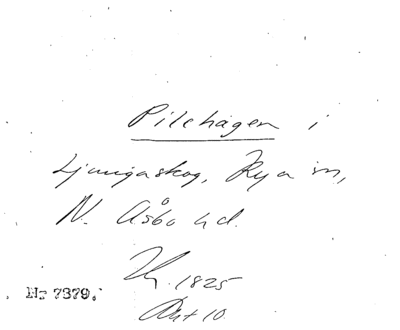 Pilehagen i
Ljungaskog, Rya sn,
N. Åsbo hd.
1825
Akt 10.
Nr 7379.